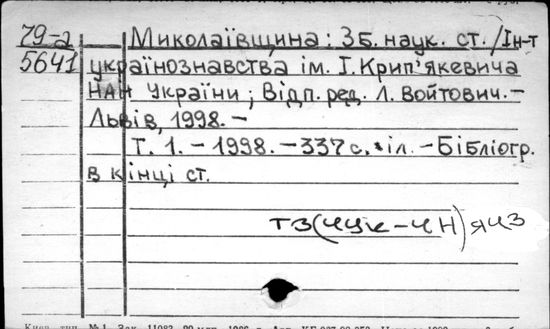 79-а Миколаївщина: Зб. наук. ст./Ін-т
5641 українознавства ім. І. Крип'якевича
НАН України; Відп. ред. Л. Войтович.–
Львів, 1998.–
Т. 1.–1998.–337 с. іл.–Бібліогр.
в кінці ст.
ТЗ(4Ук–4Н)я43